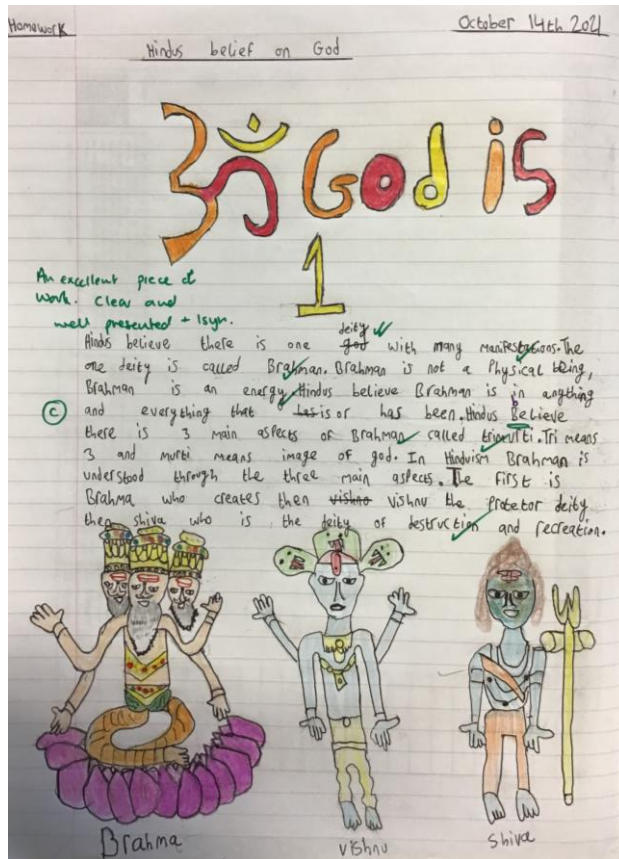 Homework
October 14th 2021
Hindus belief on God
ॐ God is
1
An excellent piece of
work. Clear and
well presented +
deity
Hindus believe there is one god with many manifestations. The
one deity is called Brahman. Brahman is not a Physical being,
Brahman is an energy. Hindus believe Brahman is in anything
C
and everything that is or has been. Hindus Believe
there is 3 main aspects of Brahman called trimurti. Tri means
3 and murti means image of god. In Hinduism Brahman is
understood through the three main aspects. The first is
Brahma who creates then vishno vishnu the protetor deity
then shiva who is the deity of destruction and recreation.
Brahma
vishnu
shiva